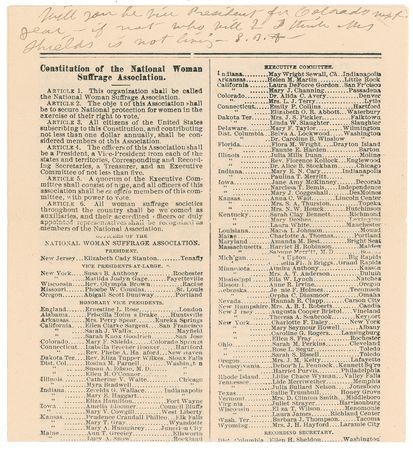 Will you be Vice President for Colorado next
year - if not who will? I think Mrs
Shields is not living S. B. A
Constitution of the National Woman
Suffrage Association.
ARTICLE 1. This organization shall be called
the National Woman Suffrage Association.
ARTICLE 2. The object of this Association shall
be to secure National protection for women in the
exercise of their right to vote.
ARTICLE 3. All citizens of the United States
subscribing to this Constitution, and contributing
not less than one dollar annually, shall be con-
sidered members of this Association.
ARTICLE 4. The officers of this Association shall
be a President, a Vice-President from each of the
states and territories, Corresponding and Record-
ing Secretaries, a Treasurer, and an Executive
Committee of not less than five.
ARTICLE 5. A quorum of the Executive Com-
mittee shall consist of nine, and all officers of this
association shall be ex officio members of this com-
mittee, with power to vote.
ARTICLE 6. All woman suffrage societies
throughout the country shall be welcomed as
auxiliaries, and their accredited officers or duly
appointed representatives shall be recognized as
members of the National Association.
OFFICERS OF THE
NATIONAL WOMAN SUFFRAGE ASSOCIATION.
PRESIDENT.
New Jersey. Elizabeth Cady Stanton, Tenafly
VICE PRESIDENTS-AT-LARGE.
New York. Susan B. Anthony Rochester
Matilda Joslyn Gage, Fayetteville
Wisconsin. Rev. Olympia Brown, Racine
Missouri. Phoebe W. Couzins, St. Louis
Oregon. Abigail Scott Duniway, Portland
HONORARY VICE PRESIDENTS.
England. Ernestine L. Rose London
Alabama. Priscilla Holmes Drake Huntsville
Arkansas. Eureka Springs
California. Ellen Clarke Sargent, San Francisco
Sarah J. Wallis, Mayfield
Sarah Knox Goodrich,
Colorado. Mary F. Shields, Colorado Springs
Connecticut. Isabella Beecher Hooker, Hartford
Rev. Phebe A. Hanaford, New Haven
Dakota Ter. Sioux Falls
Dist. Col. Washington
Susan A. Edson, M. D.
Ellen M. O'Connor
Illinois. Catherine V. Waite, Chicago
Myra Bradwell
Indiana. Zerelda G. Wallace, Indianapolis
Mary E. Haggart
Eliza Hamilton, Fort Wayne
Iowa. Amelia Bloomer, Council Bluffs
Mary V. Cowgill West Liberty
Kansas. Prudence Crandall Philleo, Elk Falls
Mary T. Gray, Wyandotte
Mary A. Humphrey, Junction City
Maine. Rockland
Lucy A. Snow
EXECUTIVE COMMITTEE.
Indiana. May Wright Sewall, Ch. Indianapolis
Arkansas. Helen M. Martin Little Rock
California. Laura DeForce Gordon, San Francisco
Mary J. Channing, Pasadena
Colorado. Dr. Alida C. Avery Denver
Mrs. L. J. Terry Lytle
Connecticut. Emily P. Collins Hartford
Elizabeth O. R. Abbott, Waterbury
Dakota Ter. Mrs. J. S. Pickler, Faulktown
Linda W. Slaughter
Delaware. Mary F. Taylor Wilmington
Dist. Columbia. Belva A. Lockwood, Washington
Dr. Caroline B. Winslow
Florida. Flora M. Wright, Drayton Island
Fannie R. Harden Barton
Illinois. Julia Mills Dunn Moline
Rev. Florence Kollock Englewood
Dr. Alice B. Stockham Chicago
Indiana. Mary E. N. Cary Indianapolis
Paulina T. Merritt
Iowa. Jane Amy McKinney Decorah
Narcissa T. Bemis Independence
Mary J. Coggeshall, Des Moines
Kansas. Anna C. Wait, Lincoln Center
Mrs. S. A. Thurston, Topeka
Kentucky. Sarah Clay Bennett Richmond
Laura White
Louisiana. Monroe
Maine. Charlotte A. Thomas, Portland
Maryland. Amanda M. Best
Massachusetts. Harriet H. Robinson, Malden
Michigan. Big Rapids
Grand Rapids
Minnesota. Anoka
Mrs. A. T. Anderson, Duluth
Mississippi. Lily W. Lynch Natchez
Missouri. Anne R. Irvine Oregon
Nebraska. Jennie F. Holmes Tecumseh
Orpha C. Dinsmoor Omaha
Nevada. Hannah R. Clapp, Carson City
New Hampshire. Candia
New Jersey. Augusta Cooper Bristol Vineland
Theresa A. Seabrook, Keyport
New York. Lillie Devereux
Mary Seymour Howell Albany
Caroline G. Rogers, Lansingburg
Ellen S. Fray, Rochester
Ohio. Sarah M. Perkins, Cleveland
Rosa L. Segur Toledo
Sarah S. Bissell Toledo
Oregon. Mrs. J. M. Kelty Lafayette
Pennsylvania. Deborah L. Pennock, Kennett Sq're
Harriet Purvis, Philadelphia
Rhode Island. Lillie Chace Wyman, Valley Falls
Tennessee. Lide Meriwether Memphis
Texas.
Vermont. Mrs. D. Clinton Smith, Middleton
Virginia.
Wisconsin. Menomonie
Laura James Richland Center
Wash. Ter. Barbara J. Thompson, Tacoma
Wyoming. Mrs. J. H. Hayford, Laramie City
RECORDING SECRETARY.
Dist. Columbia. Ellen H. Sheldon Washington